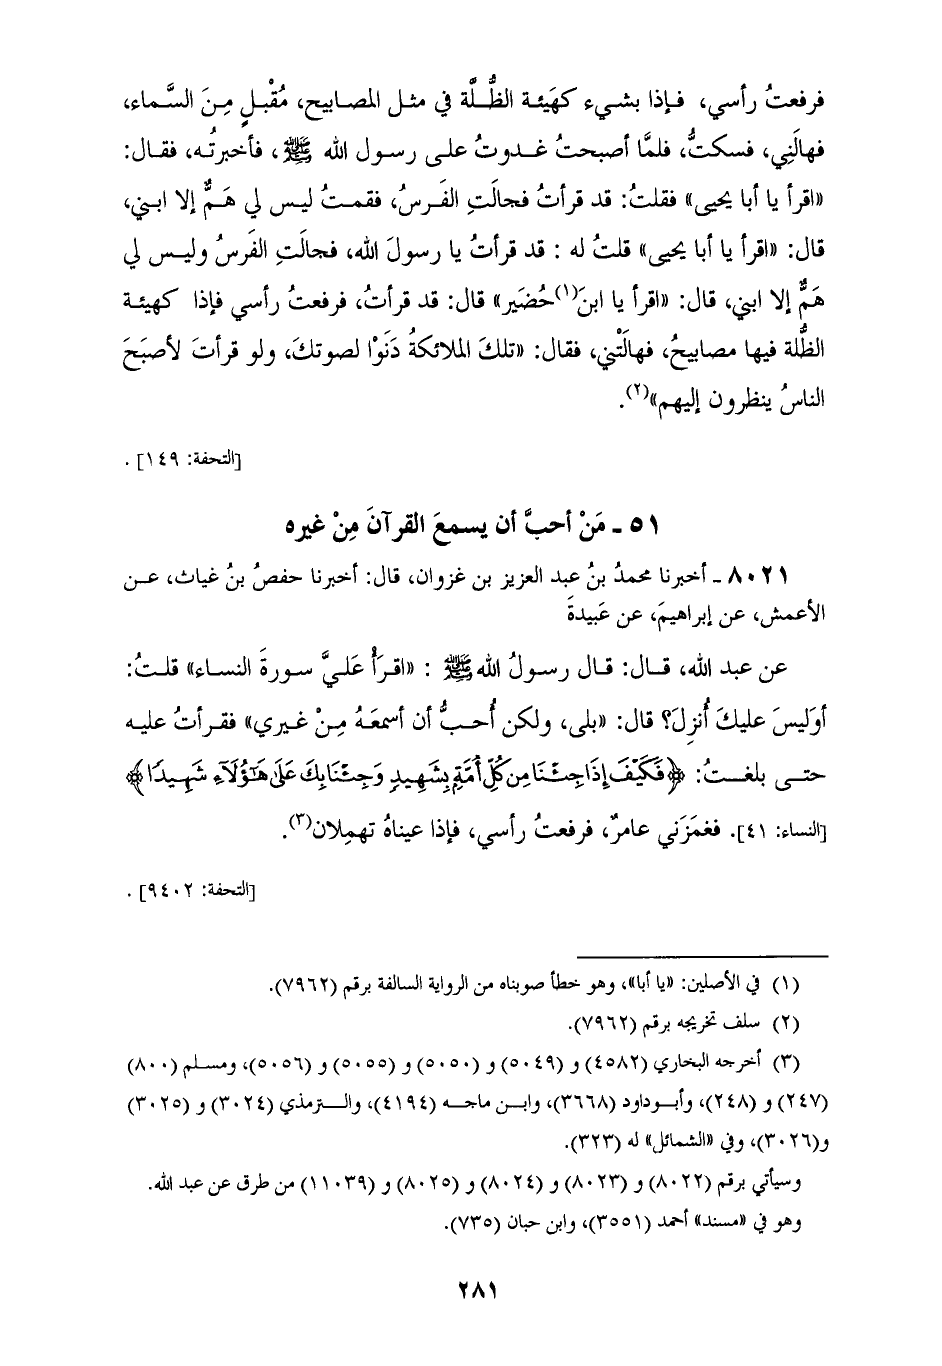 فرفعتُ رأسي، فإذا بشيء كهَيئة الظُّلَّة في مثل المصابيح، مُقْبلٍ مِنَ السَّماء،
فهالَنِي، فسكتُّ، فلمَّا أصبحتُ غدوتُ على رسول الله ﷺ، فأخبرتُه، فقال:
«اقرأ يا أبا يحيى» فقلتُ: قد قرأتُ فحالَتِ الفَرسُ، فقمتُ ليس لي هَمٌّ إلا ابني،
قال: «اقرأ يا أبا يحيى» قلتُ له : قد قرأتُ يا رسولَ الله، فحالَتِ الفَرسُ وليس لي
هَمٌّ إلا ابني، قال: «اقرأ يا ابنَ(١)حُضَير» قال: قد قرأتُ، فرفعتُ رأسي فإذا كهيئة
الظُّلة فيها مصابيحُ، فهالَتْني، فقال: «تلكَ الملائكةُ دَنَوْا لصوتكَ، ولو قرأتَ لأصبَحَ
الناسُ ينظرون إليهم»(٢).
[التحفة: ١٤٩] .
٥١ ـ مَنْ أحبَّ أن يسمعَ القرآنَ مِنْ غيره
٨٠٢١ ـ أخبرنا محمدُ بنُ عبد العزيز بن غزوان، قال: أخبرنا حفصُ بنُ غياث، عن
الأعمش، عن إبراهيمَ، عن عَبيدةَ
عن عبد الله، قال: قال رسولُ الله ﷺ : «اقرَأْ عَليَّ سورةَ النساء» قلتُ:
أوَليسَ عليكَ أُنزِلَ؟ قال: «بلى، ولكن أُحبُّ أن أسمعَهُ مِنْ غيري» فقرأتُ عليه
حتى بلغتُ: ﴿فَكَيْفَ إِذَا جِئْنَا مِن كُلِّ أُمَّةٍ بِشَهِيدٍ وَجِئْنَا بِكَ عَلَىٰ هَٰٓؤُلَآءِ شَهِيدًا﴾
[النساء: ٤١]. فغمَزَني عامرٌ، فرفعتُ رأسي، فإذا عيناهُ تهمِلان(٣).
[التحفة: ٩٤٠٢] .
(١) في الأصلين: «يا أبا»، وهو خطأ صوبناه من الرواية السالفة برقم (٧٩٦٢).
(٢) سلف تخريجه برقم (٧٩٦٢).
(٣) أخرجه البخاري (٤٥٨٢) و (٥٠٤٩) و (٥٠٥٠) و (٥٠٥٥) و (٥٠٥٦)، ومسلم (٨٠٠)
(٢٤٧) و (٢٤٨)، وأبوداود (٣٦٦٨)، وابن ماجه (٤١٩٤)، والترمذي (٣٠٢٤) و (٣٠٢٥)
و(٣٠٢٦)، وفي «الشمائل» له (٣٢٣).
وسيأتي برقم (٨٠٢٢) و (٨٠٢٣) و (٨٠٢٤) و (٨٠٢٥) و (١١٠٣٩) من طرق عن عبد الله.
وهو في «مسند» أحمد (٣٥٥١)، وابن حبان (٧٣٥).
٢٨١